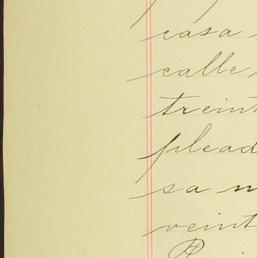 casa
calle
treint
plead
sa
veint